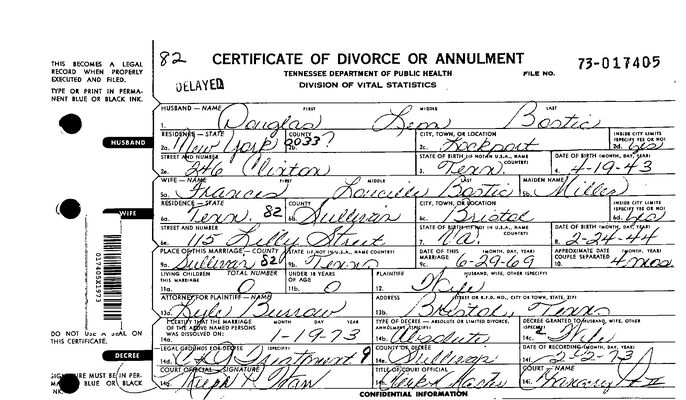 82 CERTIFICATE OF DIVORCE OR ANNULMENT 73-017405
TENNESSEE DEPARTMENT OF PUBLIC HEALTH FILE NO.
DELAYED DIVISION OF VITAL STATISTICS
THIS BECOMES A LEGAL
RECORD WHEN PROPERLY
EXECUTED AND FILED.
TYPE OR PRINT IN PERMA-
NENT BLUE OR BLACK INK.
HUSBAND — NAME FIRST MIDDLE LAST
1. Douglas Leon Bostic
RESIDENCE — STATE COUNTY CITY, TOWN, OR LOCATION INSIDE CITY LIMITS
(SPECIFY YES OR NO)
HUSBAND
2a. New York 0033? 2b. 2c. Lockport 2d. yes
STREET AND NUMBER STATE OF BIRTH (IF NOT IN U.S.A., NAME COUNTRY) DATE OF BIRTH (MONTH, DAY, YEAR)
2e. 246 Clinton 3. Tenn. 4. 4-19-43
WIFE — NAME FIRST MIDDLE LAST MAIDEN NAME
5a. Frances Bostic 5b.
RESIDENCE — STATE COUNTY CITY, TOWN, OR LOCATION INSIDE CITY LIMITS
(SPECIFY YES OR NO)
WIFE
6a. Tenn. 82 6b. Sullivan 6c. Bristol 6d. yes
STREET AND NUMBER STATE OF BIRTH (IF NOT IN U.S.A., NAME COUNTRY) DATE OF BIRTH (MONTH, DAY, YEAR)
6e. 115 Street 7. Va. 8. 2-24-44
PLACE OF THIS MARRIAGE — COUNTY STATE (IF NOT IN U.S.A., NAME COUNTRY) DATE OF THIS MARRIAGE (MONTH, DAY, YEAR) APPROXIMATE DATE COUPLE SEPARATED (MONTH, DAY, YEAR)
9a. Sullivan 82 9b. Tenn. 9c. 6-29-69 10. 4 mos
LIVING CHILDREN THIS MARRIAGE TOTAL NUMBER UNDER 18 YEARS OF AGE PLAINTIFF HUSBAND, WIFE, OTHER (SPECIFY)
11a. 0 11b. 0 12. Wife
ATTORNEY FOR PLAINTIFF — NAME ADDRESS STREET OR R.F.D. NO., CITY OR TOWN, STATE, ZIP
13a. Burrow 13b. Bristol, Tenn
I CERTIFY THAT THE MARRIAGE OF THE ABOVE NAMED PERSONS WAS DISSOLVED ON: MONTH DAY YEAR TYPE OF DECREE — ABSOLUTE OR LIMITED DIVORCE, ANNULMENT (SPECIFY) DECREE GRANTED TO HUSBAND, WIFE, OTHER (SPECIFY)
14a. 1-19-73 14b. Absolute 14c.
DO NOT USE A SEAL ON
THIS CERTIFICATE.
LEGAL GROUNDS FOR DECREE (SPECIFY) COUNTY OF DECREE DATE OF RECORDING (MONTH, DAY, YEAR)
DECREE
14d. 14e. Sullivan 14f. 2-2-73
COURT OFFICIAL — SIGNATURE TITLE OF COURT OFFICIAL COURT (SPECIFY)
SIGNATURE MUST BE IN PER-
BLUE OR BLACK
INK.
CONFIDENTIAL INFORMATION